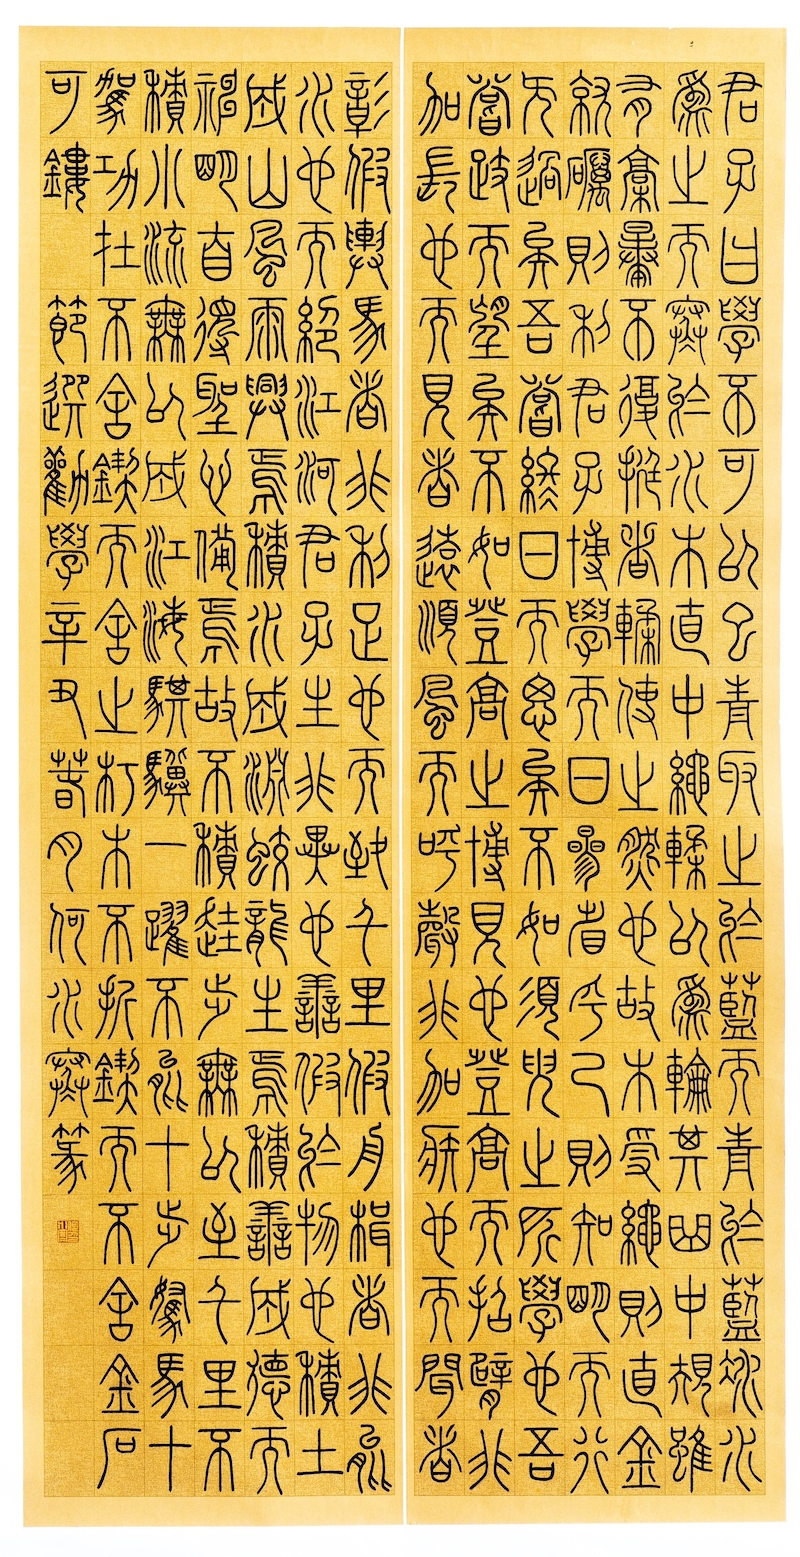 君子曰學不可以已青取之於藍而青於藍冰水
為之而寒於水木直中繩輮以為輪其曲中規雖
有槁暴不復挺者輮使之然也故木受繩則直金
就礪則利君子博學而日參省乎己則知明而行
无過矣吾嘗終日而思矣不如須臾之所學也吾
嘗跂而望矣不如登高之博見也登高而招臂非
加長也而見者遠順風而呼聲非加疾也而聞者
彰假輿馬者非利足也而致千里假舟楫者非能
水也而絕江河君子生非異也善假於物也積土
成山風雨興焉積水成淵蛟龍生焉積善成德而
神明自得聖心備焉故不積跬步無以至千里不
積小流無以成江海騏驥一躍不能十步駑馬十
駕功在不舍鍥而舍之朽木不折鍥而不舍金石
可鏤 節選勸學辛丑春月何水寒篆